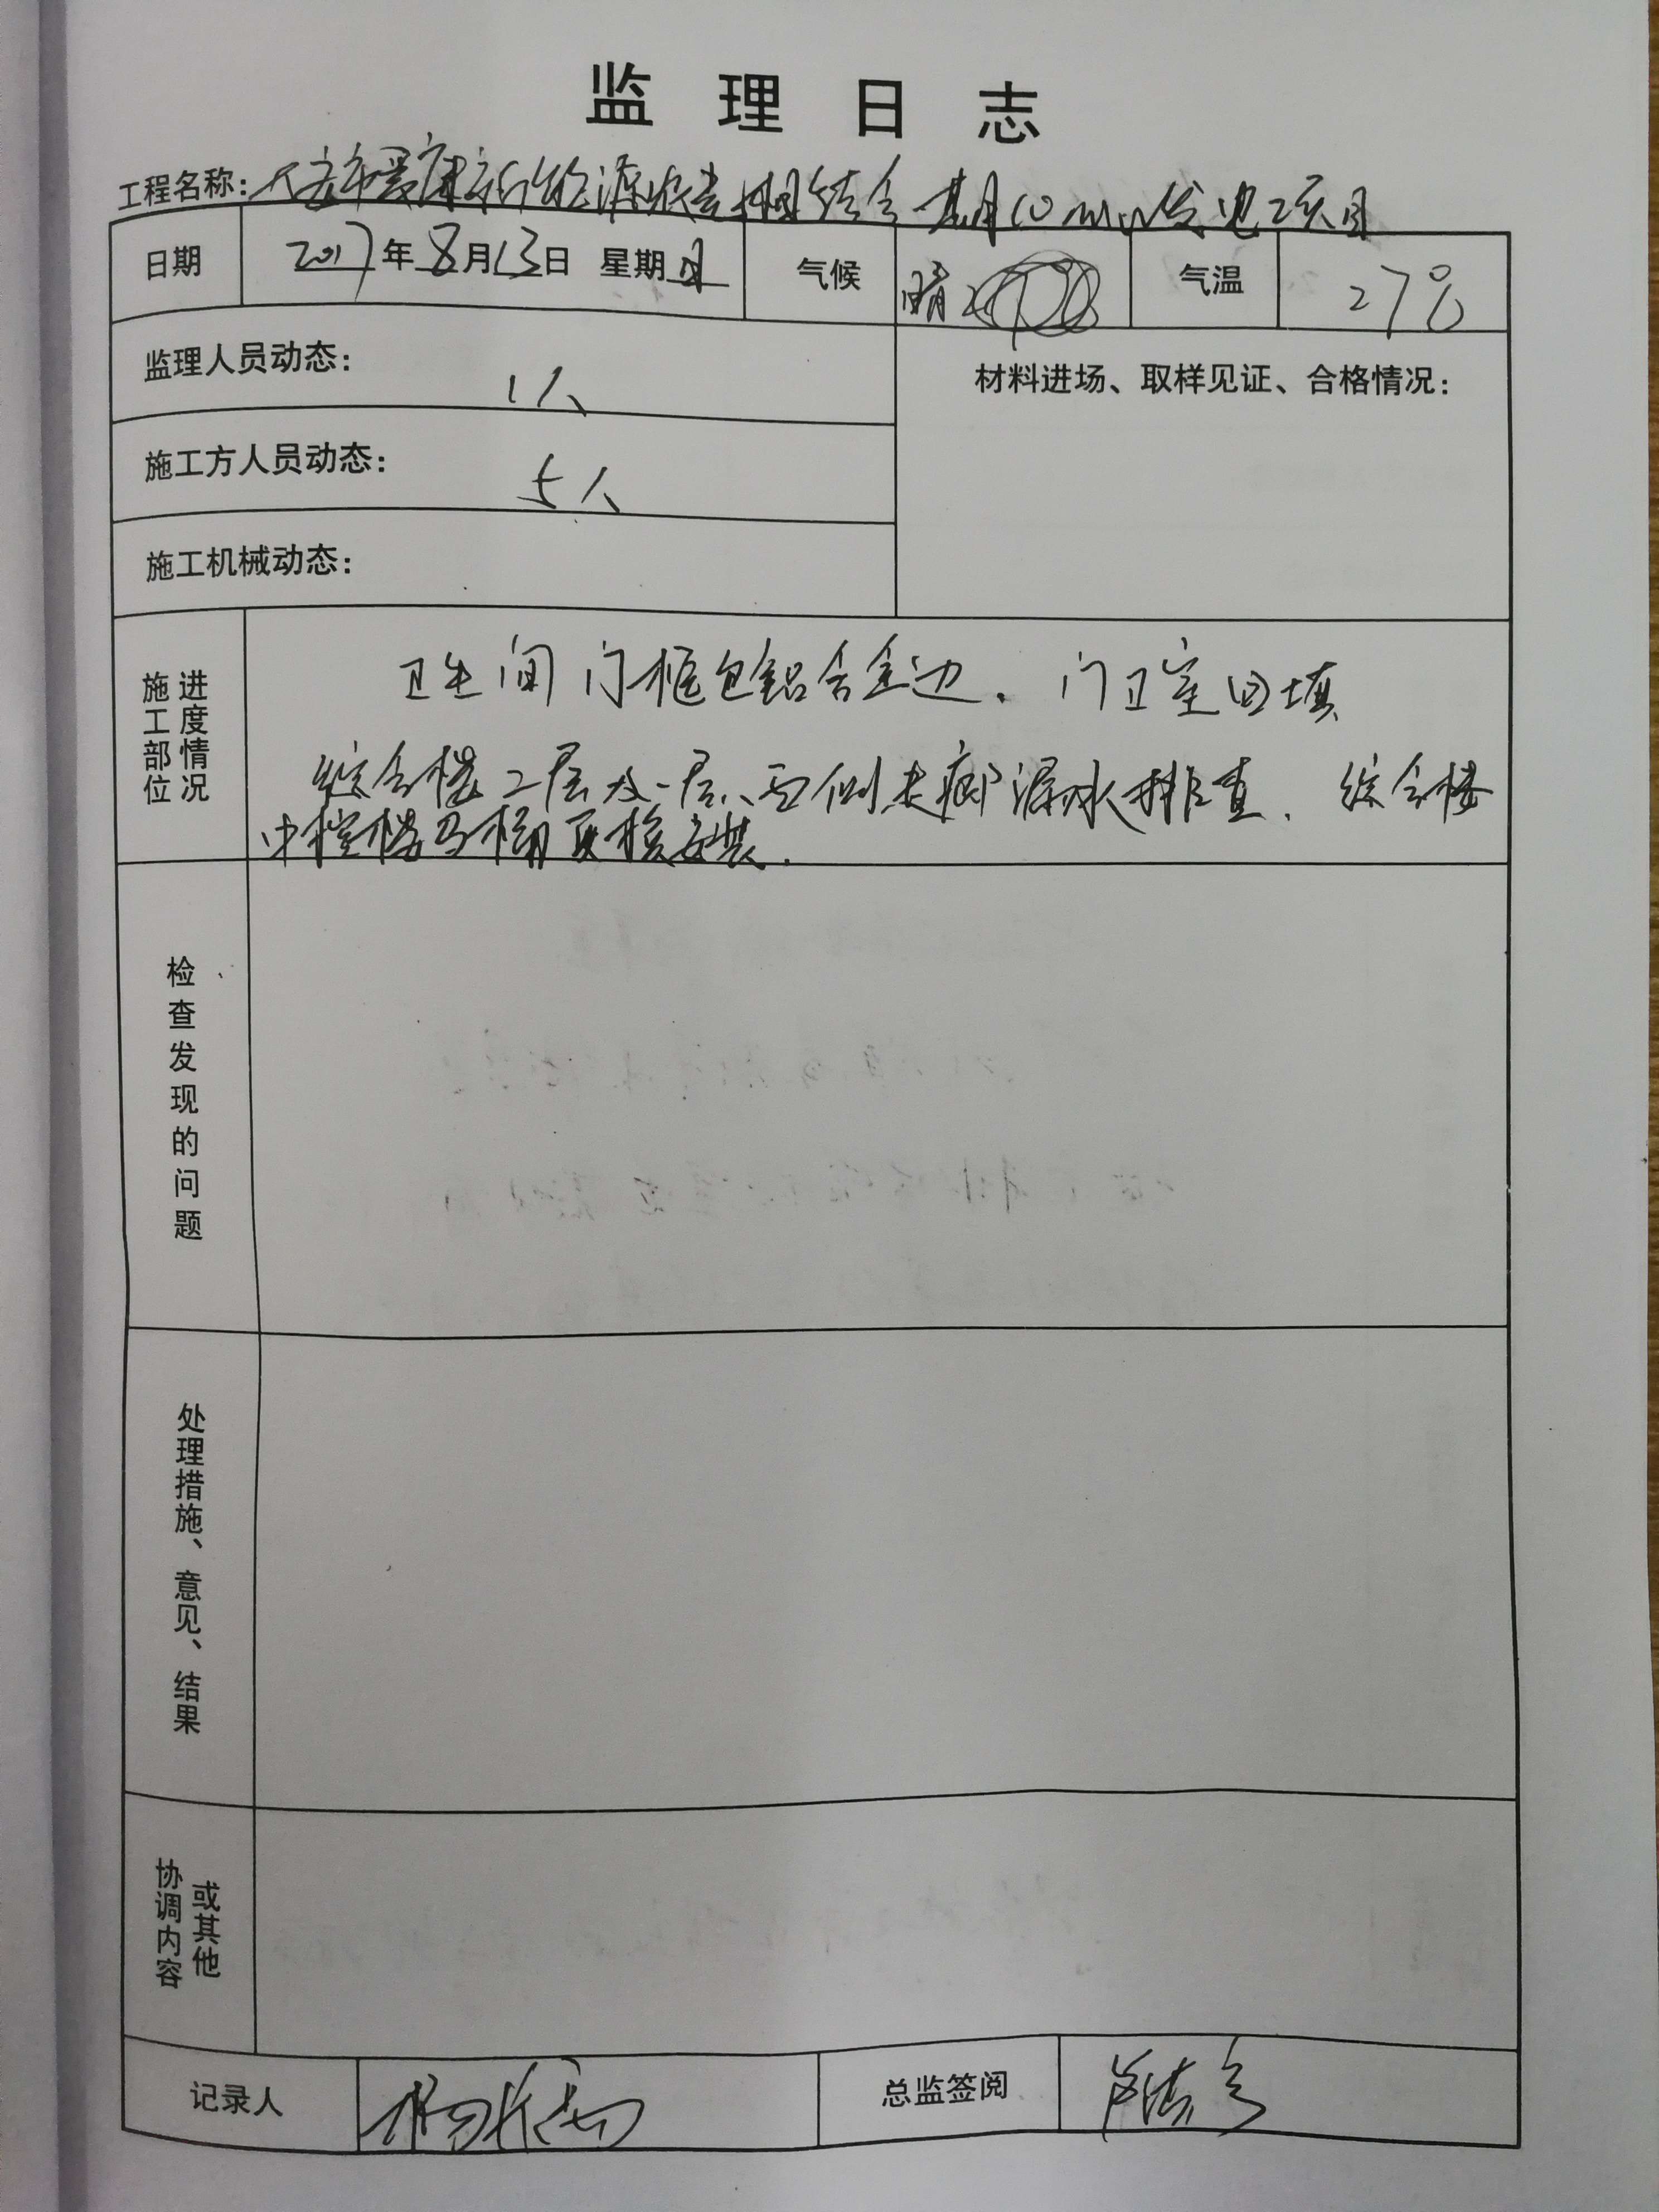 监理日志
工程名称：大安市爱康新能源牧光相结合一期10MW发电项目
日期 2017年8月13日 星期日 气候 晴 气温 27℃
监理人员动态： 1人
材料进场、取样见证、合格情况：
施工方人员动态： 5人
施工机械动态：
施工部位
进度情况
卫生间门框包铝合金边. 门卫室回填
综合楼二层及一层、西侧走廊漏水排查. 综合楼
中控楼 安装.
检查发现的问题
处理措施、意见、结果
协调内容
或其他
记录人
总监签阅